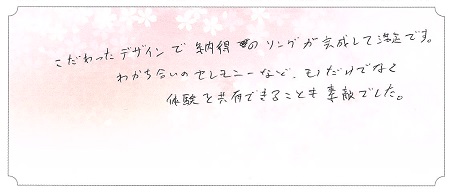 こだわったデザインで納得のリングが完成して満足です。
わかち合いのセレモニーなど、モノだけでなく
体験を共有できることも素敵でした。